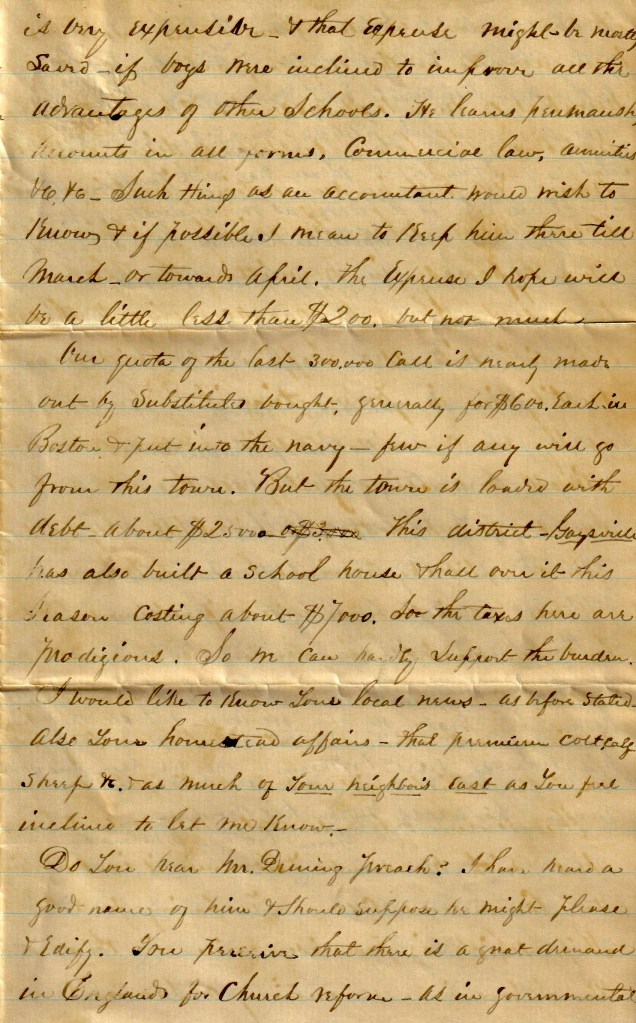 is very expensive - & that expense might be mostly
saved - if boys were inclined to improve all the
advantages of other Schools. He learns penmanship
accounts in all forms, Commercial law, annuities
&c, &c - Such things as an accountant would wish to
Know, & if possible, I mean to Keep him there till
March - or towards April. The Expense I hope will
be a little less than $200. but not much
Our quota of the last 300.000 Call is nearly made
out by Substitutes bought, generally for $600. Each in
Boston & put into the navy - few if any will go
from this town. But the town is loaded with
debt - about $25000 or $3.000 This district - Gaysville
has also built a School house & hall over it this
Season Costing about $7000. So the taxes here are
prodigious. So we can hardly Support the burden.
I would like to Know Your local news - as before Stated -
Also Your homestead affairs - that premium colt, calf
Sheep &c. & as much of Your neighbors east as You feel
inclined to let me Know -
Do You hear Mr. preach? I have heard a
good name of him & Should Suppose he might please
& Edify. You perceive that there is a great demand
in England for Church reform - as in governmental